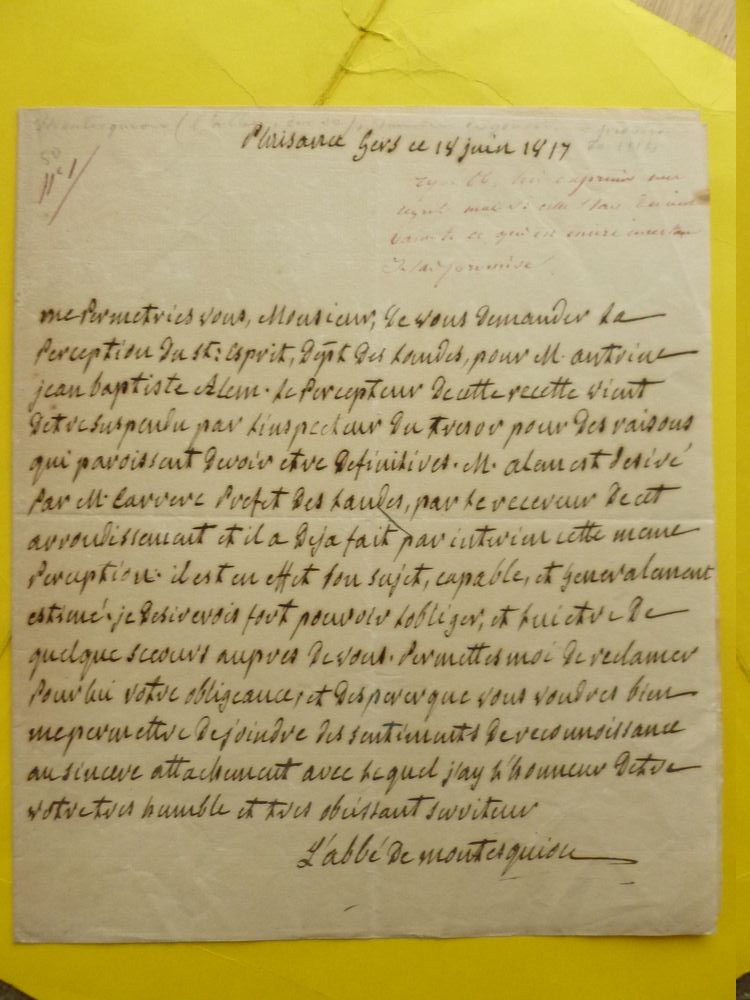 Plaisance Gers ce 18 juin 1817
N° 1
me Permetries vous, Monsieur, de vous demander La
Perception du st: Esprit, dept des Landes, pour M. antoine
jean baptiste Alem. Le Percepteur de cette recette vient
detre suspendu par L'inspecteur du tresor pour des raisons
qui paroissent devoir etre definitives. M. alem est desiré
Par M. Carrere Prefet des Landes, par Le receveur de cet
arrondissement et il a deja fait par interim cette meme
Perception. il est en effet bon sujet, capable, et generalement
estimé. je desirerois fort pouvoir L'obliger, et Lui etre de
quelque secours aupres de vous. Permettes moi de reclamer
Pour Lui votre obligeance, et desperer que vous voudres bien
me permettre de joindre des sentiments de reconnoissance
au sincere attachement avec Lequel j'ay L'honneur detre
votre tres humble et tres obeissant serviteur
L'abbé de montesquiou